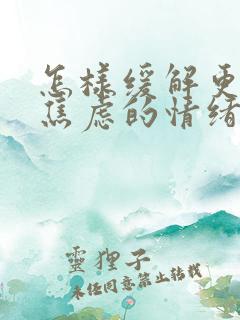 怎樣緩解更
焦虑的情绪
靈狸子
未经同意禁止转载